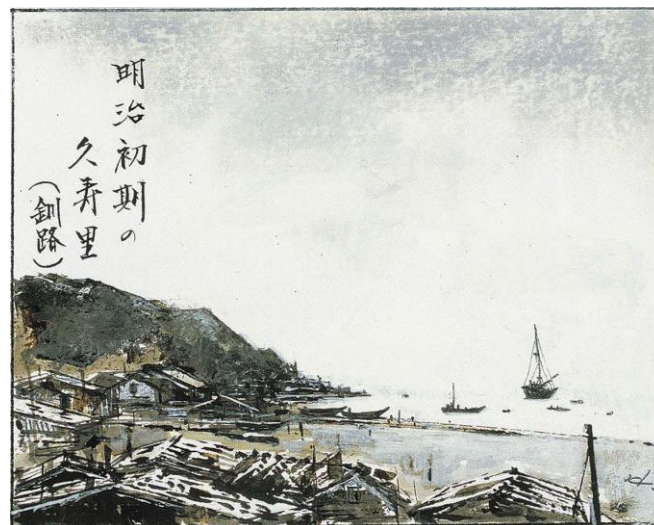 明治初期の
久寿里
(釧路)